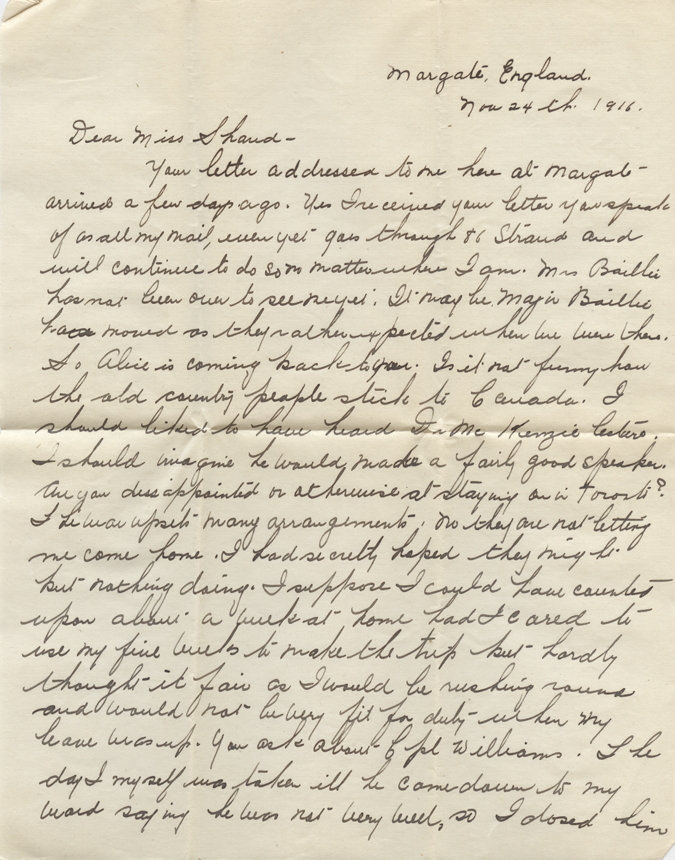 Margate, England.
Nov 24th. 1916.
Dear Miss Shand-
Your letter addressed to me here at Margate
arrived a few days ago. Yes I received your letter you speak
of as all my mail, even yet goes through 86 Strand and
will continue to do so no matter where I am. Mrs Baillie
has not been over to see me yet. It may be Major Baillie
has moved as they rather expected when we were there.
So Alice is coming back to you. Is it not funny how
the old country people stick to Canada. I
should liked to have heard Dr Mc Kenzie lecture.
I should imagine he would made a fairly good speaker.
Are you dissappointed or otherwise at staying on in Toronto?
The war upsets many arrangements. No they are not letting
me come home. I had secretly hoped they might
but nothing doing. I suppose I could have counted
upon about a week at home had I cared to
use my five weeks to make the trip but hardly
thought it fair as I would be rushing round
and would not be very fit for duty when my
leave was up. You ask about Cpl Williams. The
day I myself was taken ill he came down to my
ward saying he was not very well, so I dosed him